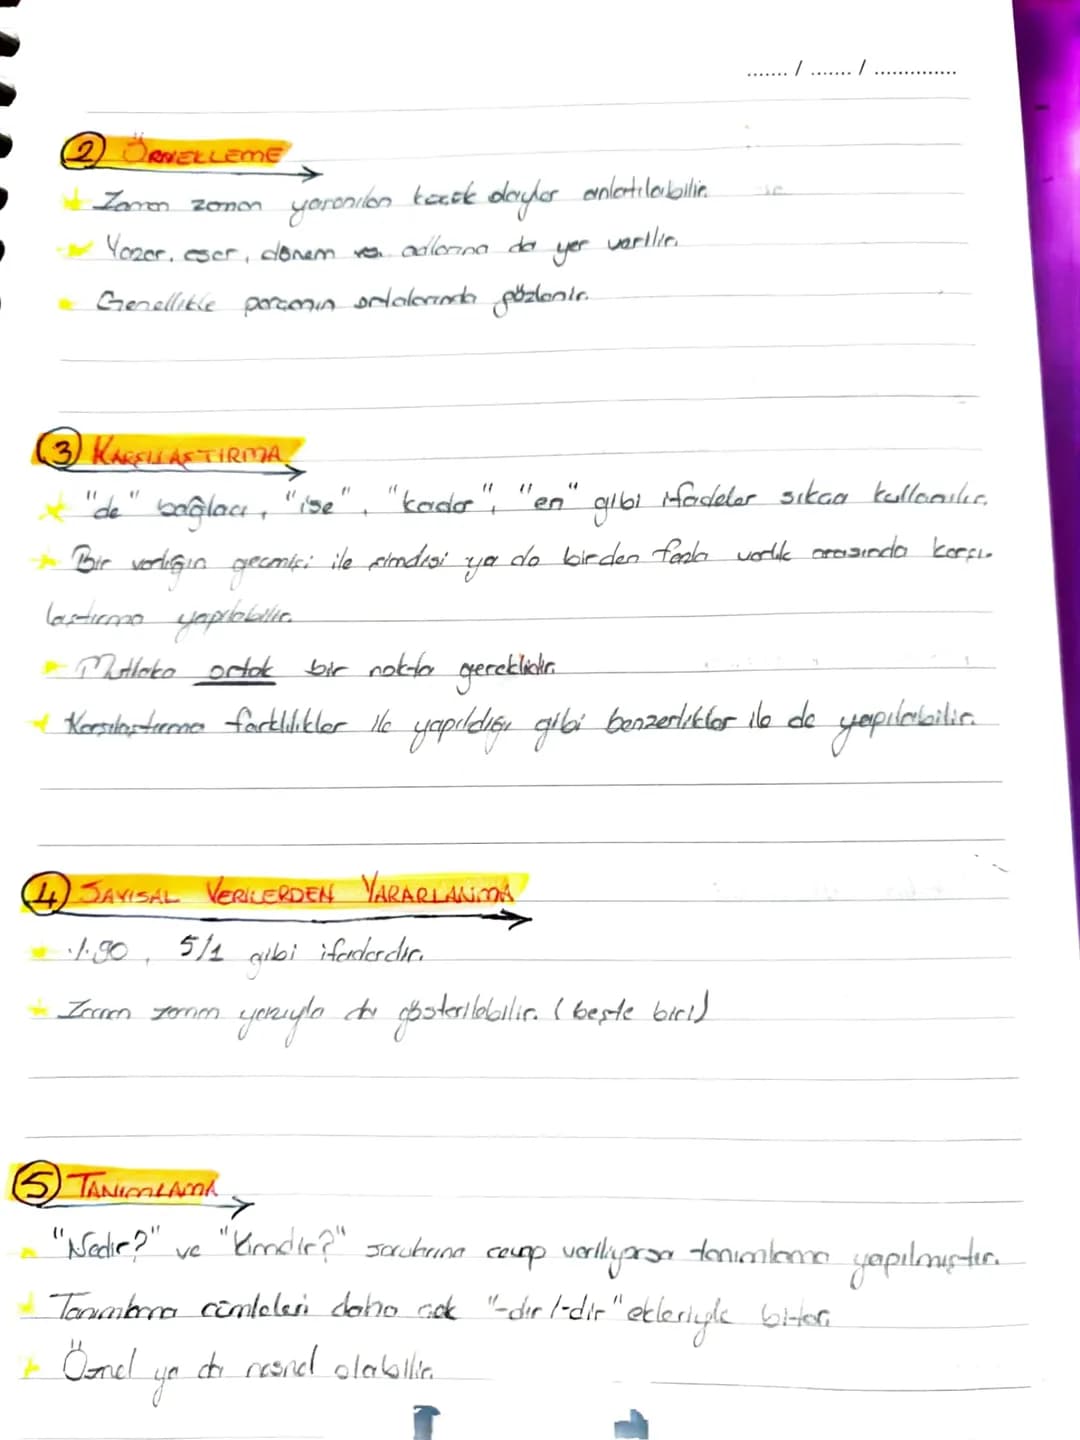 ....... / ....... / ..............
2 ÖRNEKLEME
Zaman zaman yaşanılan küçük olaylar anlatılabilir.
Yazar, eser, dönem vs. adlarına da yer verilir.
Genellikle parçanın ortalarında gözlenir.
3 KARŞILAŞTIRMA
"de" bağlacı, "ise", "kadar", "en" gibi ifadeler sıkça kullanılır.
Bir varlığın geçmişi ile şimdisi ya da birden fazla varlık arasında karşı-
laştırma yapılabilir.
Mutlaka ortak bir nokta gereklidir.
Karşılaştırma farklılıklar ile yapıldığı gibi benzerlikler ile de yapılabilir.
4 SAYISAL VERİLERDEN YARARLANMA
%90, 5/1 gibi ifadelerdir.
Zaman zaman yazıyla da gösterilebilir. (beşte biri)
5 TANIMLAMA
"Nedir?" ve "Kimdir?" sorularına cevap veriliyorsa tanımlama yapılmıştır.
Tanımlama cümleleri daha çok "-dır/-dir" ekleriyle biter.
Öznel ya da nesnel olabilir.